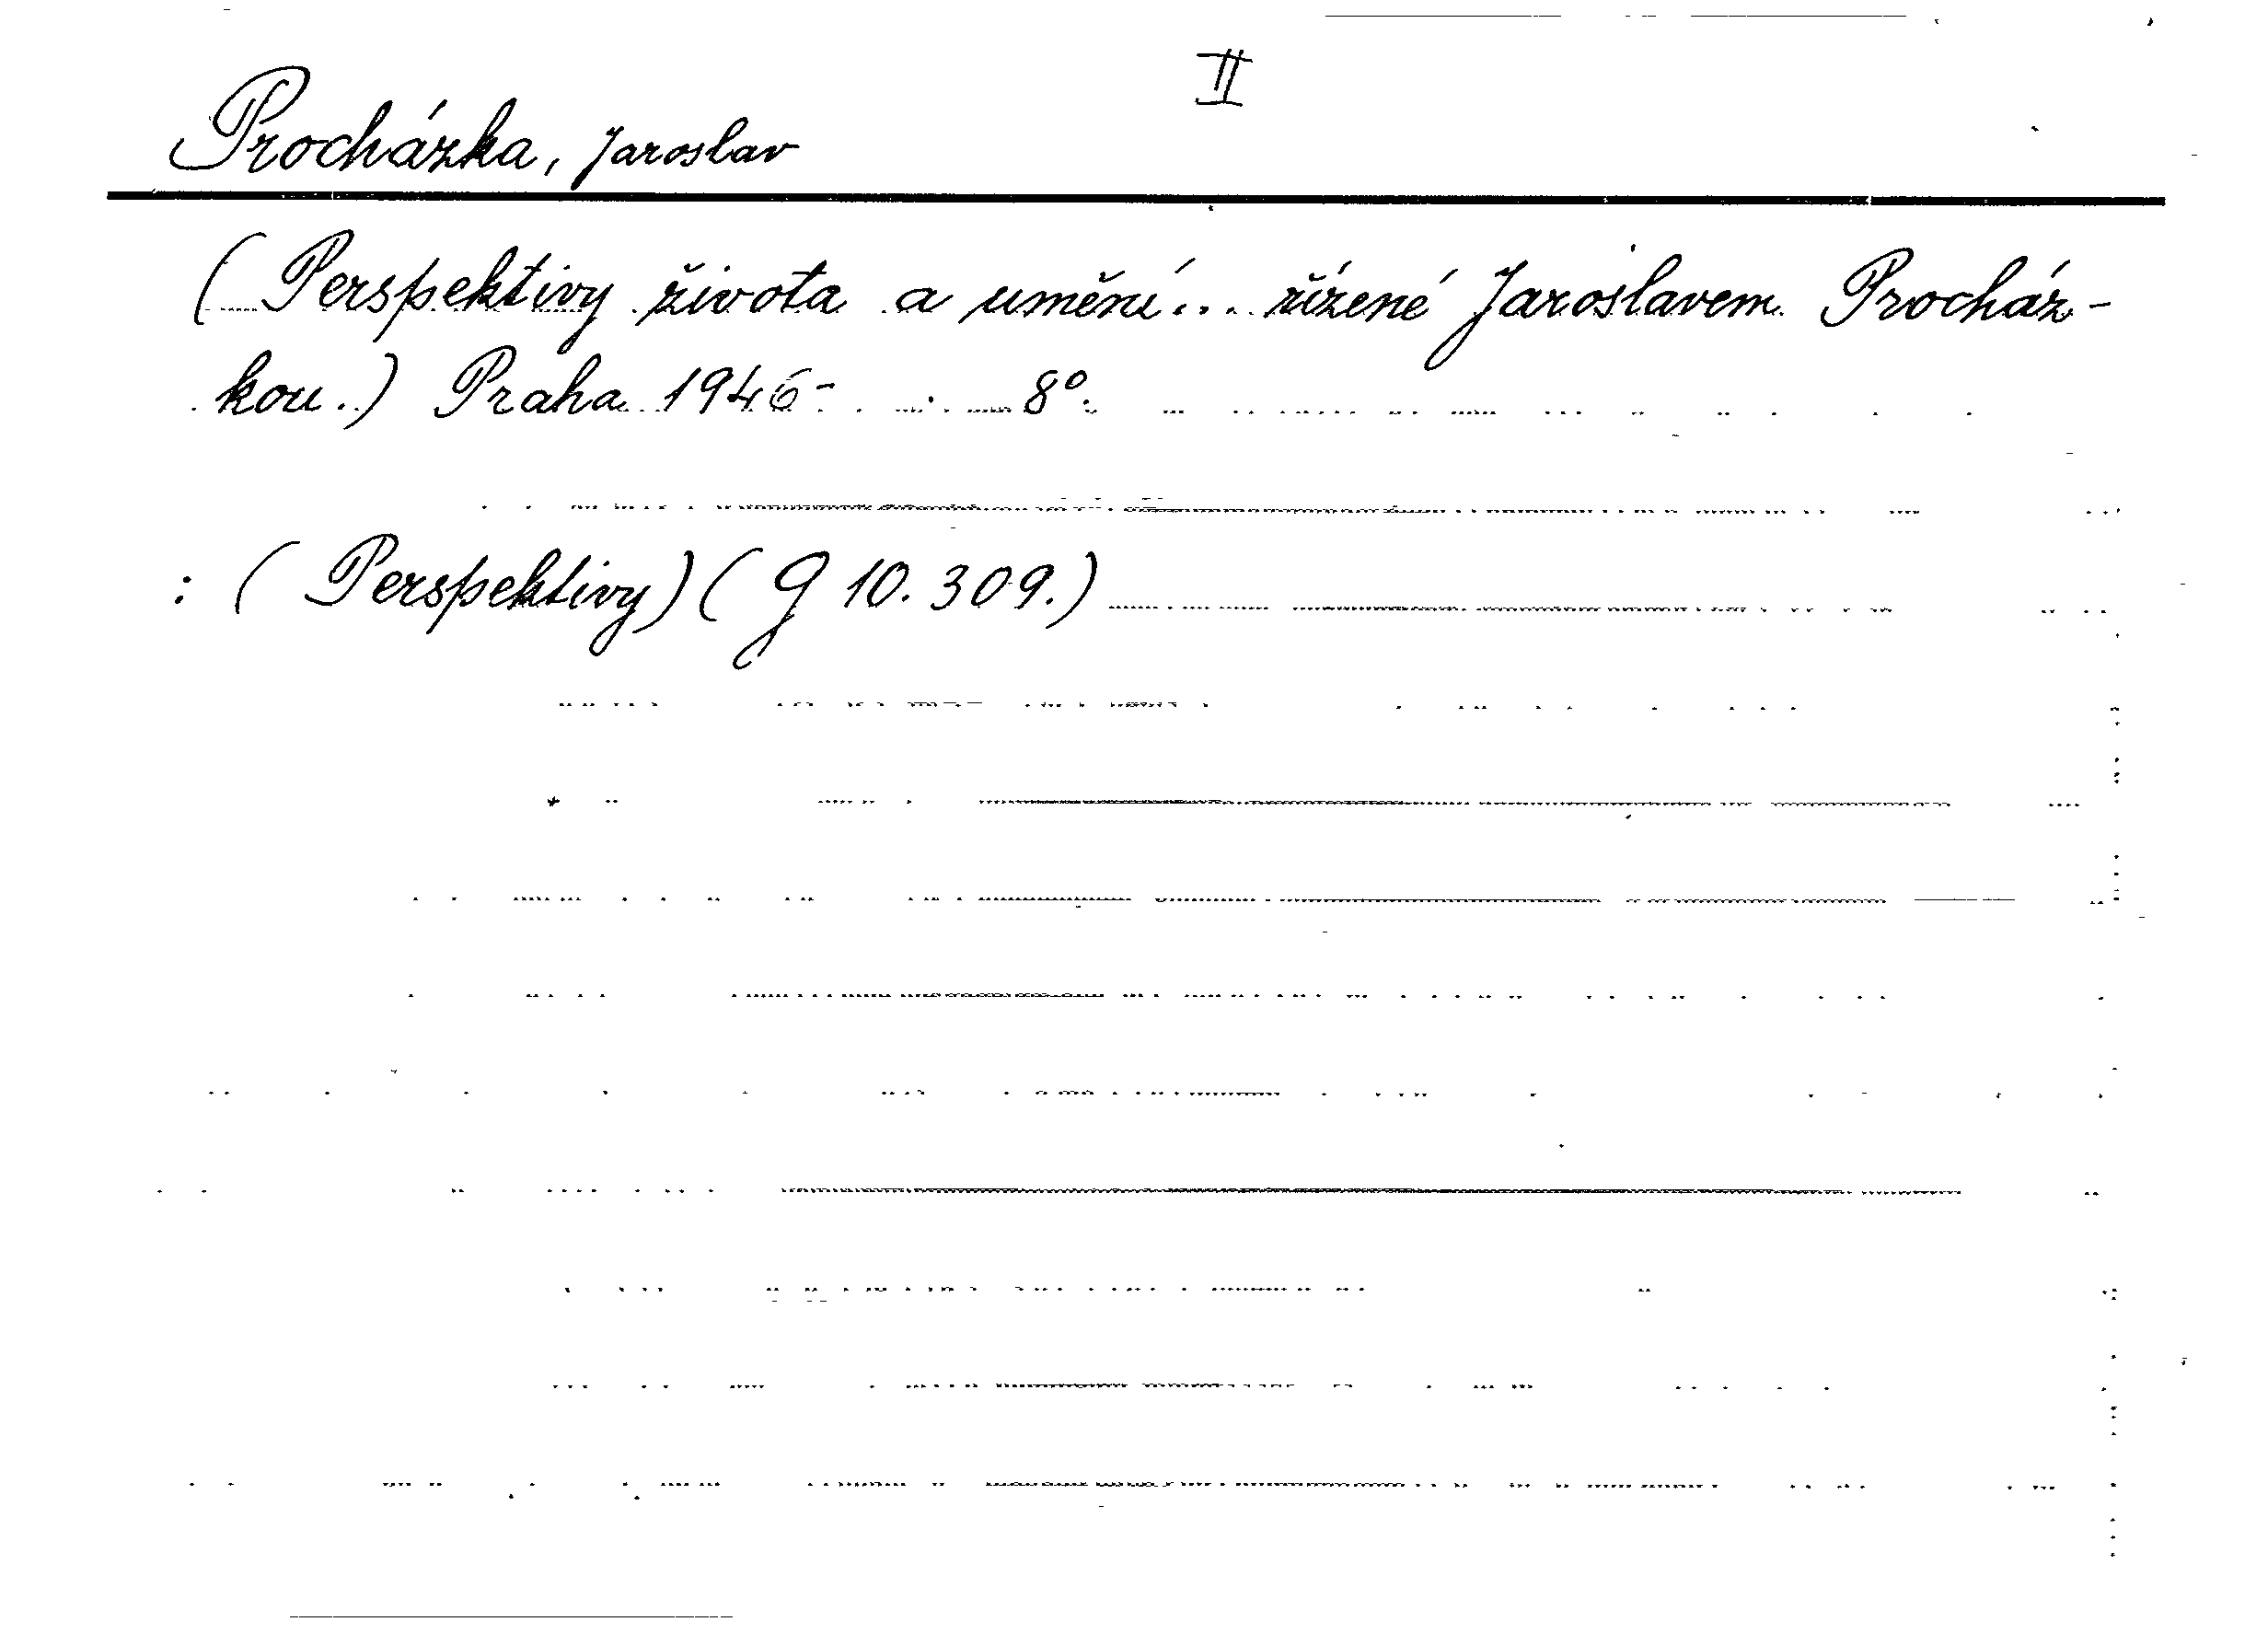 II
Procházka, Jaroslav
(Perspektivy života a umění... řízené Jaroslavem Procház-
kou.) Praha 1946- 8°.
: (Perspektivy) (G 10.309.)